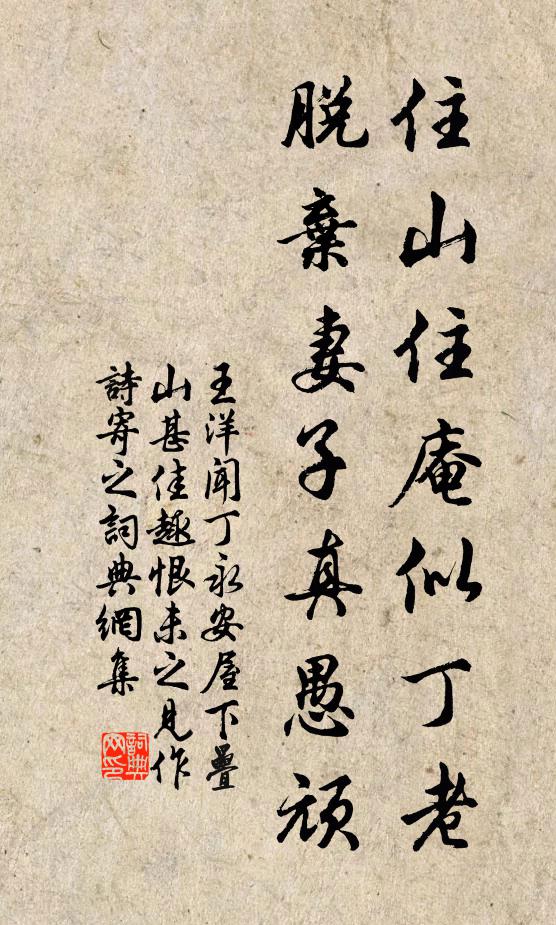 住山住庵似丁老
脫棄妻子真愚頑
王洋聞丁永安屋下疊
山甚佳趣恨未之見作
詩寄之詞典網集
詞典
网印